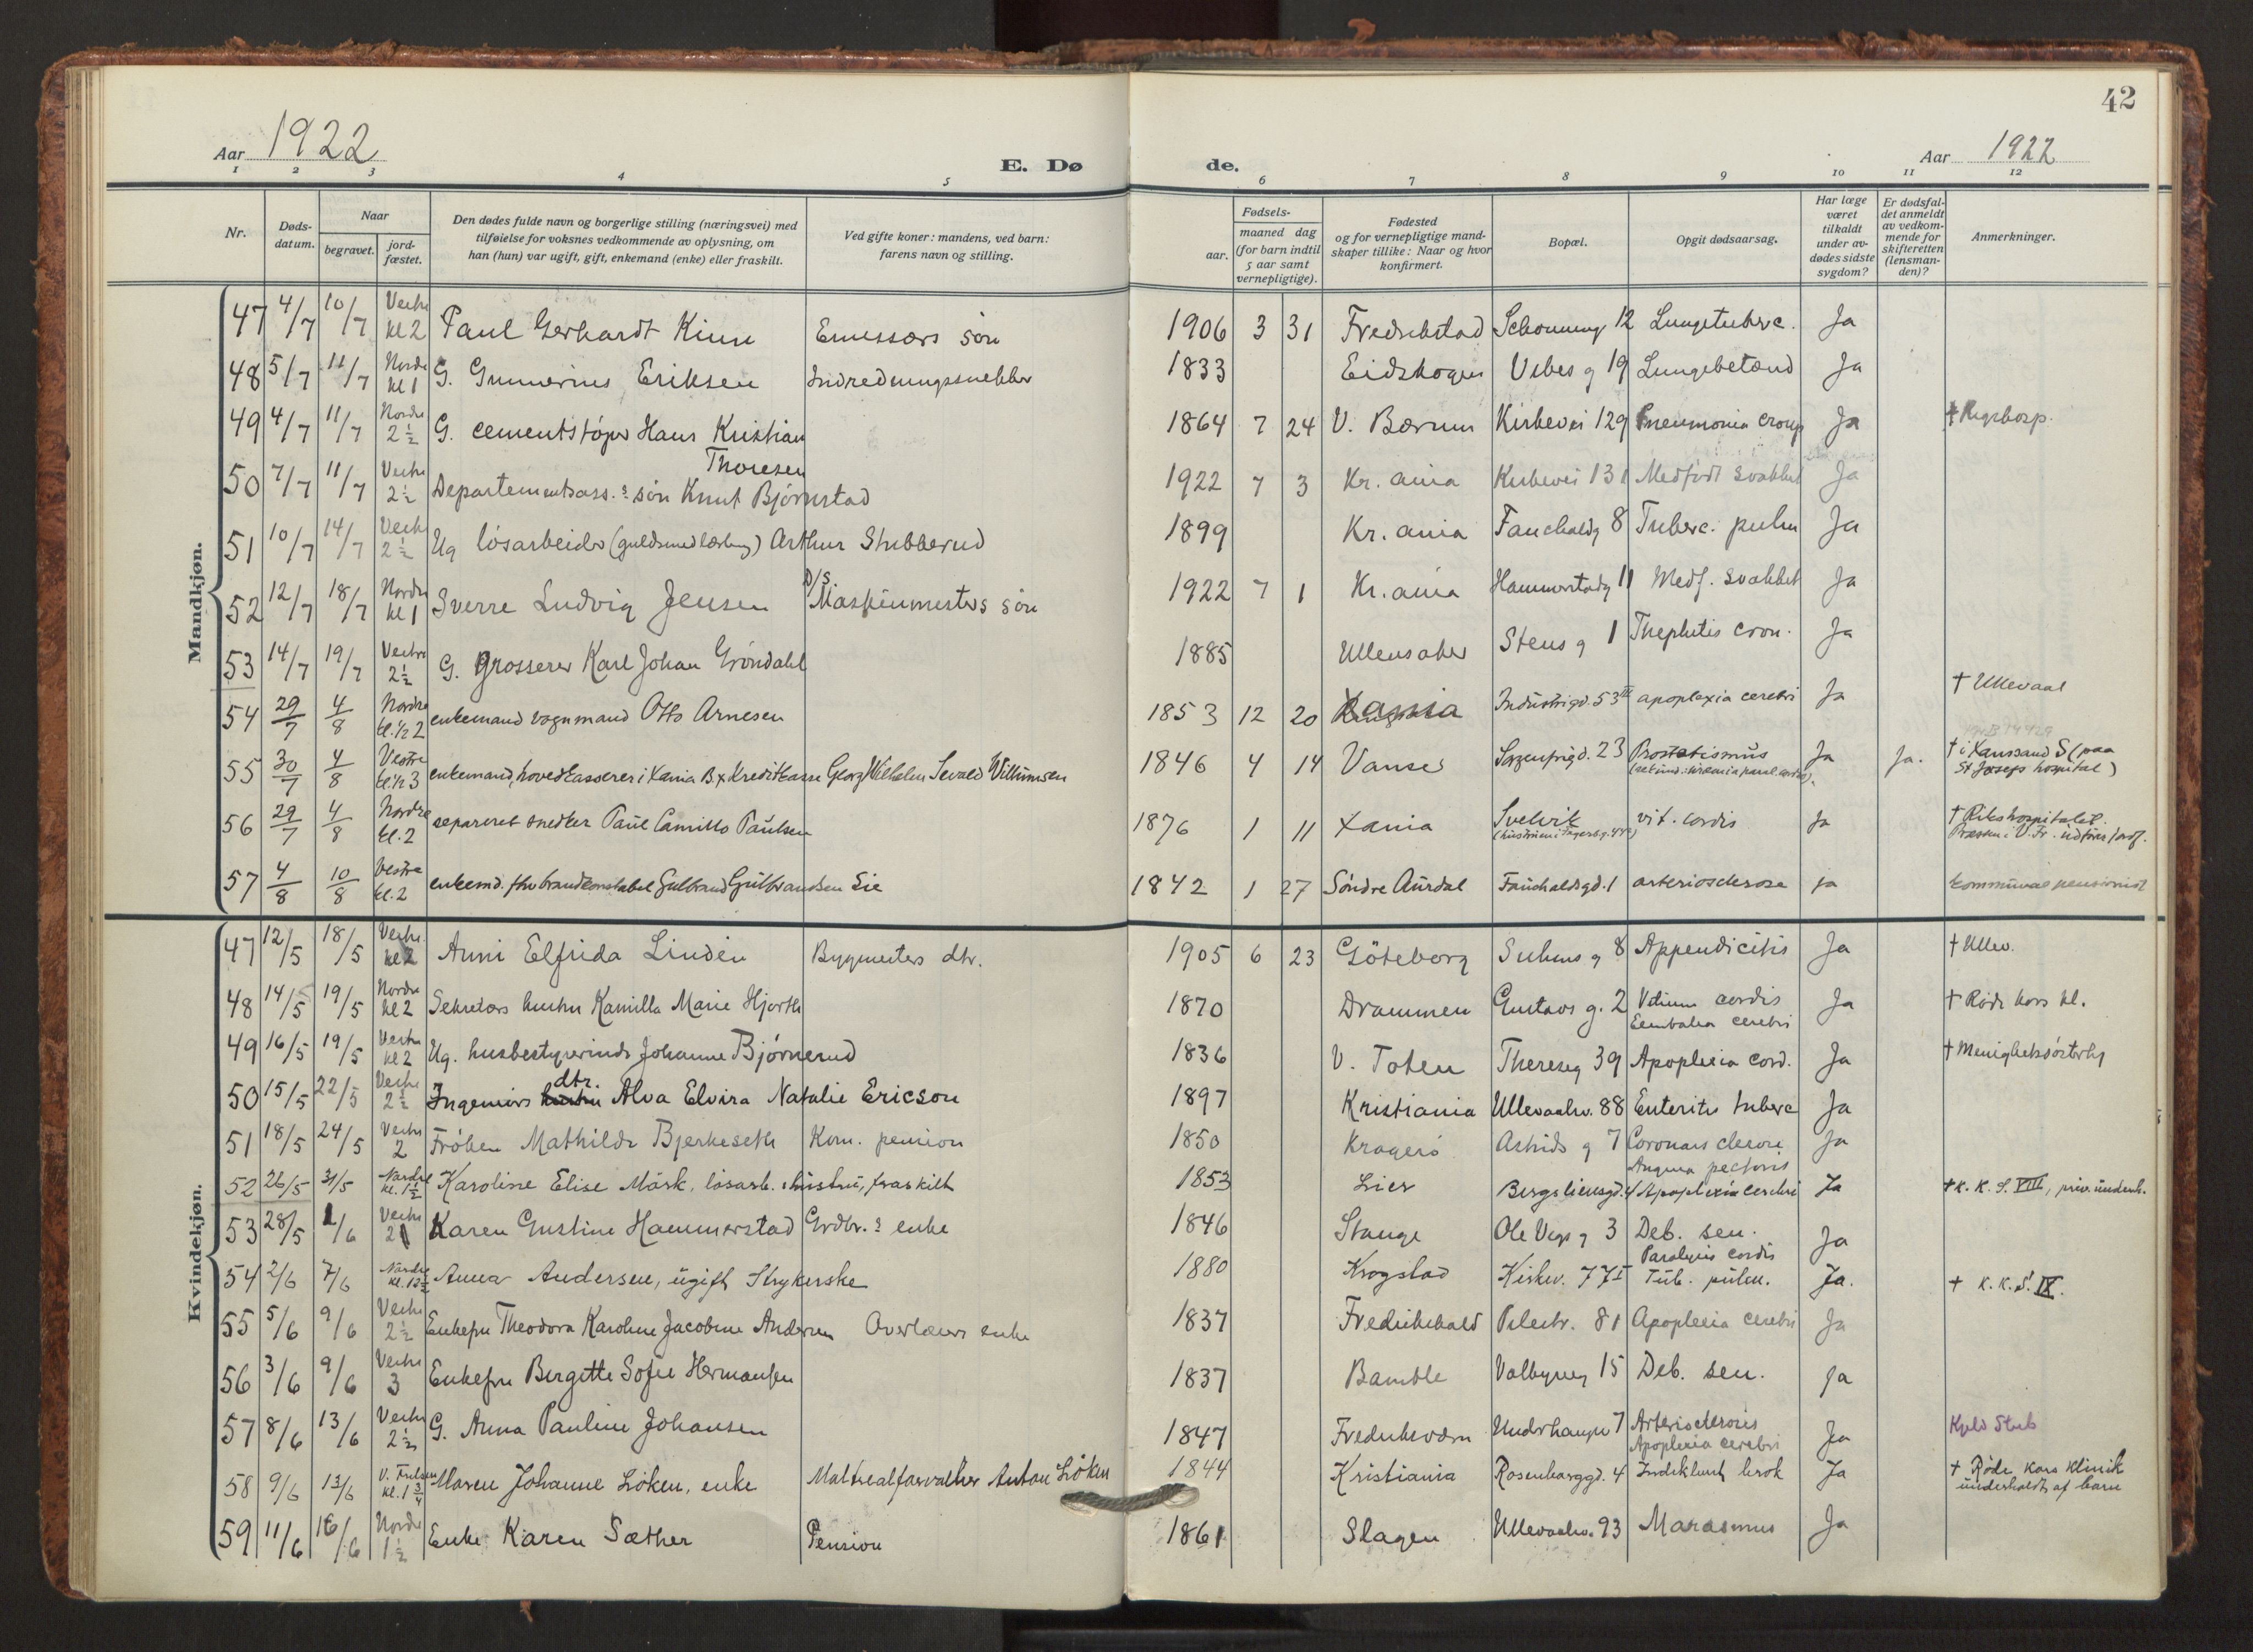 42
Aar 1922
E. Dø de.
Aar 1922
1 2 3 4 5 6 7 8 9 10 11 12
Nr.
Døds-datum.
Naar
begravet.
jord-fæstet.
Den dødes fulde navn og borgerlige stilling (næringsvei) med
tilføielse for voksnes vedkommende av oplysning, om
han (hun) var ugift, gift, enkemand (enke) eller fraskilt.
Ved gifte koner: mandens, ved barn:
farens navn og stilling.
Fødsels-
aar.
maaned dag
(for barn indtil
5 aar samt
vernepligtige).
Fødested
og for vernepligtige mand-
skaper tillike: Naar og hvor
konfirmert.
Bopæl.
Opgit dødsaarsag.
Har læge
været
tilkaldt
under av-
dødes sidste
sygdom?
Er dødsfal-
det anmeldt
av vedkom-
mende for
skifteretten
(lensman-
den)?
Anmerkninger.
Mandkjøn.
47 4/7 10/7 kl 2 Paul Gerhardt Kinn søn 1906 3 31 12 Lungetuberc. Ja
48 5/7 11/7 kl 1 G. Gunnerius Eriksen Indredningssnekker 1833 Eidskogen Vibes g 19 Lungebetænd Ja
49 4/7 11/7 2½ G. cementstøper Hans Kristian Thoresen 1864 7 24 V. Bærum Kirkevei 129 Pneumonia croup Ja † Rigshosp.
50 7/7 11/7 2½ Departementsass.s søn Knut Bjørnstad 1922 7 3 Kr. ania Kirkevei 131 Medfødt svakhet Ja
51 10/7 14/7 2½ Ug løsarbeider (guldsmedlærling) Arthur Stubberud 1899 Kr. ania Fauchaldg 8 Tuberc. pulm Ja
52 12/7 18/7 kl 1 Sverre Ludvig Jensen D/S. Maskinmesters søn 1922 7 1 Kr. ania Hammerstadg 11 Medf. svakhet Ja
53 14/7 19/7 2½ G. Grosserer Karl Johan Grøndahl 1885 Ullensaker Stens g 1 Ja
54 29/7 4/8 Nordre kl. ½ 2 enkemand vognmand Otto Arnesen 1853 12 20 Xania Industrigd. 53 III apoplexia cerebri Ja † Ullevaal
55 30/7 4/8 Vestre kl. ½ 3 enkemand, hovedkasserer i Xania B & Kreditkasse Georg Wilhelm Sevald Willumsen 1846 4 14 Vanse 23 Prostatismus Ja ja. † i Xanssand S (paa St Josefs hospital)
56 29/7 4/8 Nordre kl. 2 separeret snedker Paul Camillo Paulsen 1876 1 11 Xania Svelvik vit. cordis Ja † Rikshospitalet.
57 4/8 10/8 Vestre kl. 2 enkemd. fhv brandkonstabel Gulbrand Gulbrandsen Lie 1842 1 27 Søndre Aurdal Fauchaldsgd. 1 arteriosclerose ja kommunal pensionist
Kvindekjøn.
47 12/5 18/5 kl 2 Anni Elfrida Lindén Bygmesters dtr. 1905 6 23 Göteborg Suhms g 8 Appendicitis Ja † Ullev.
48 14/5 19/5 Nordre kl 2 Sekretærs hustru Kamilla Marie Hjorth 1870 Drammen Gustavs g. 2 Vitium cordis Embolia cerebri Ja † Røde kors kl.
49 16/5 19/5 kl 2 Ug. husbestyrerinde Johanne Bjørnerud 1836 V. Toten Thereseg 39 Apoplexia cord. Ja
50 15/5 22/5 2½ Ingeniørs dtr. Alva Elvira Natalie Ericson 1897 Kristiania Ullevaalsv. 88 Enteritis tuberc Ja
51 18/5 24/5 2 Frøken Mathilde Bjerkeseth Kom. pension 1850 Kragerø Astrids g 7 Angina pectoris Ja
52 26/5 31/5 Nordre kl. 1½ Karoline Elise Mörk, løsarb. hustru, fraskilt 1853 Lier Bergsliensgd. 4 Apoplexia cerebri Ja † K. K. S. VIII, priv. underh.
53 28/5 1/6 2 Karen Gustine Hammerstad Grdbr.s enke 1846 Stange Ole Vigs g 3 Deb. sen. Paralysis cordis Ja
54 2/6 7/6 Nordre Anna Andersen, ugift Strykerske 1880 Krogstad Kirkev. 77 I Tub. pulm. Ja. † K. K. S. IX.
55 5/6 9/6 2½ Enkefru Theodora Karoline Jacobine Andersen Overlærers enke 1837 Fredrikshald Pilestr. 81 Apoplexia cerebri Ja
56 3/6 9/6 3 Enkefru Birgitte Sofie Hermansen 1837 Bamble Valkyrieg 15 Deb. sen. ja
57 8/6 13/6 2½ G. Anna Pauline Johansen 1847 Fredriksværn Underhaugsv 7 Arteriosclerosis Apoplexia cerebri Ja
58 9/6 13/6 kl. 1¾ Maren Johanne Løken, enke Matrealforvalter Anton Løken 1844 Kristiania Rosenborggd. 4 Indeklemt brok Ja † Røde Kors Klinik underholdt af barn
59 11/6 16/6 Nordre 1½ Enke Karen Sæther Pension 1861 Slagen Ullevaalsv. 93 Marasmus Ja